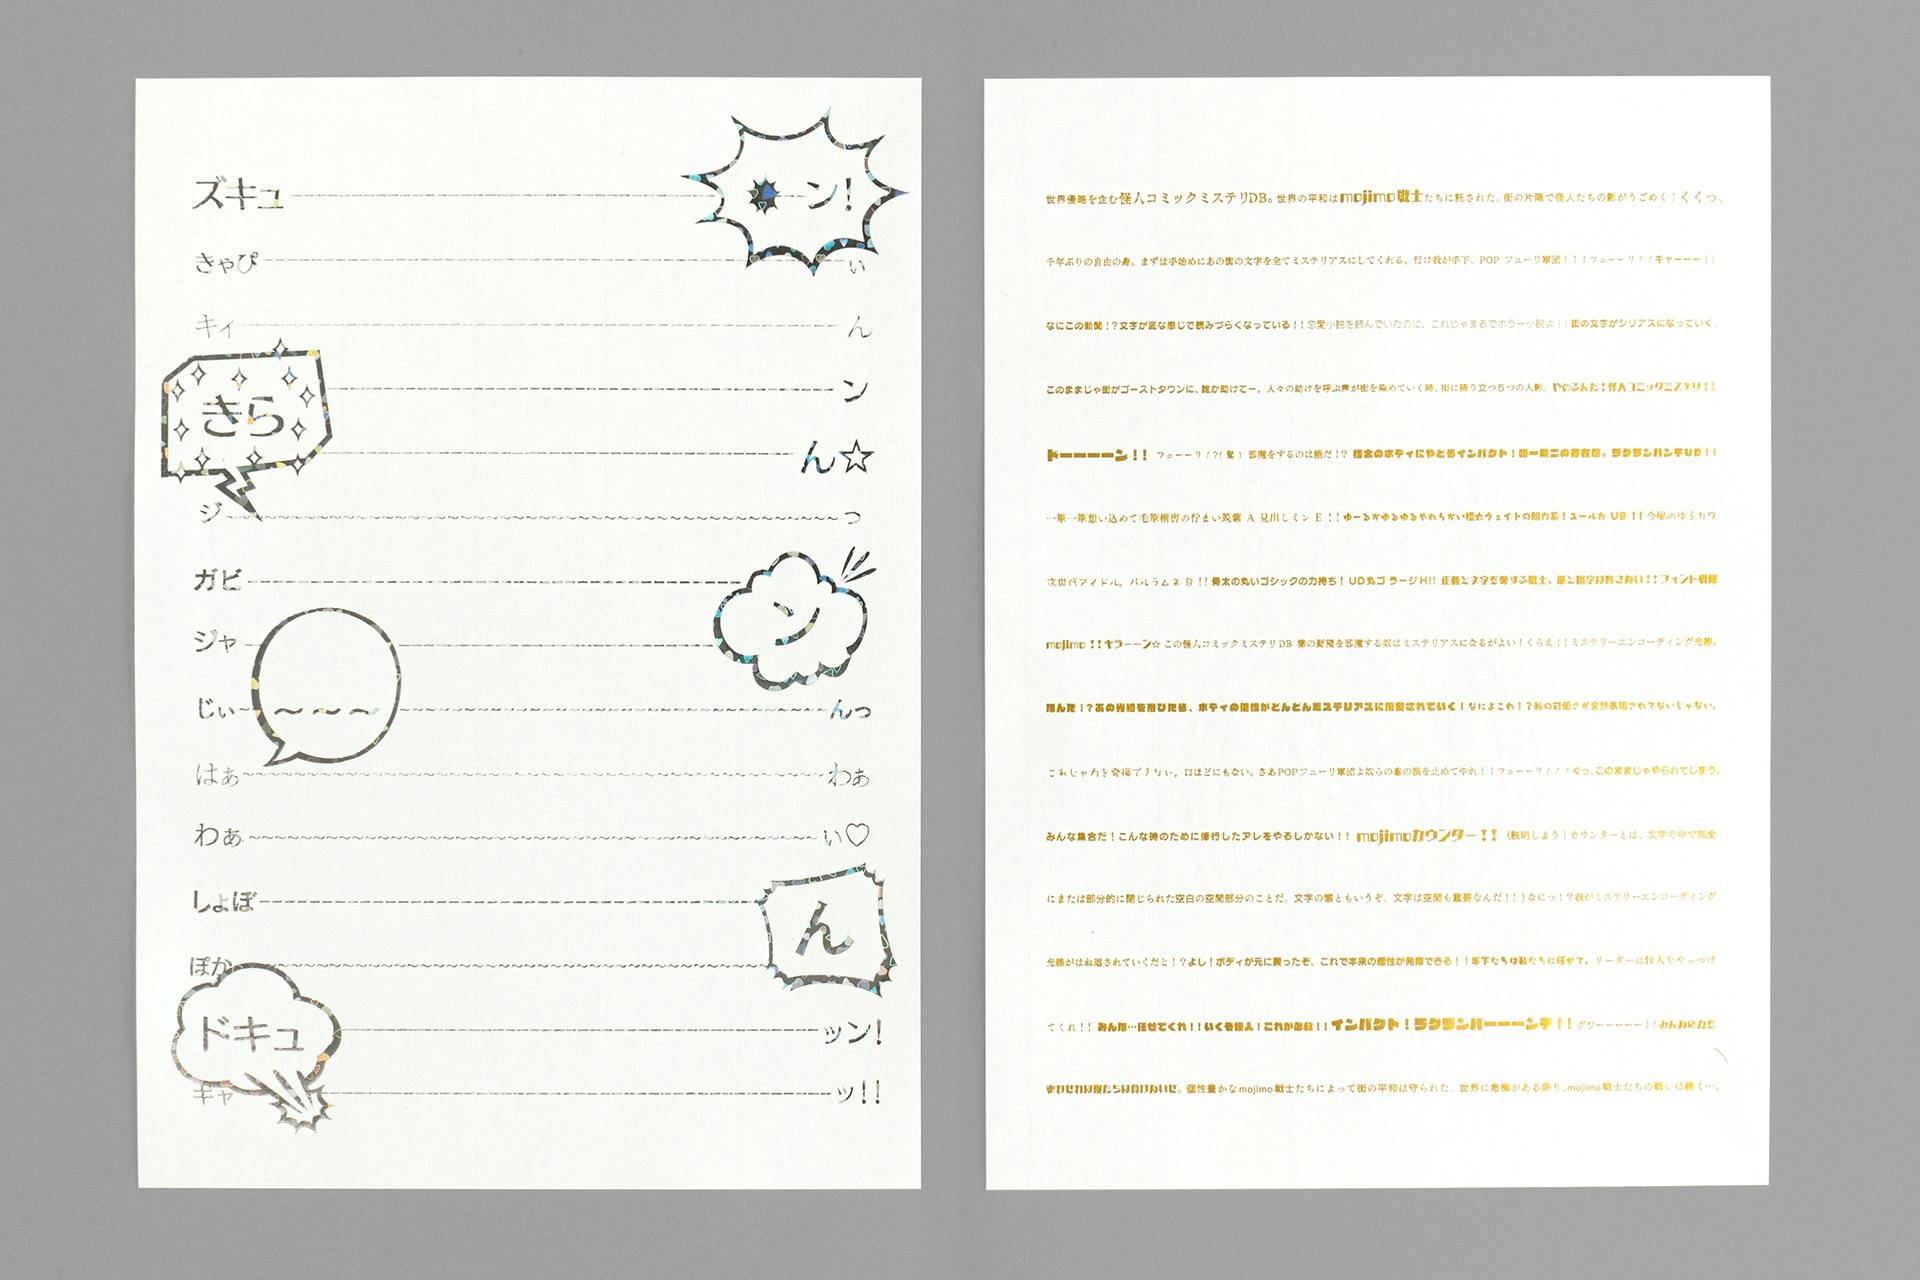 ズキュ ーーーーー ン!
きゃぴ ーーーーー い
キィ ーーーーー ん
きら ーーーーー ン
ーーーーー ん☆
ジ〜〜〜〜〜っ
ガビ ーーーーー ン
ジャ ーーーーー
じぃ〜〜〜〜〜んっ
はぁ〜〜〜〜〜わぁ
わぁ〜〜〜〜〜い♡
しょぼ ーーーーー ん
ぽか〜〜〜〜〜
ドキュ ーーーーー ッン!
ギャ ーーーーー ッ!!
世界侵略を企む怪人コミックミステリDB。世界の平和はmojimo戦士たちに託された。街の片隅で怪人たちの影がうごめく!くくっ、
千年ぶりの自由の身。まずは手始めにあの街の文字を全てミステリアスにしてくれる。行け我が手下、POP フューリ軍団!!!フューーリ!!キャーーー!!
なにこの新聞!?文字が変な感じで読みづらくなっている!!恋愛小説を読んでいたのに、これじゃまるでホラー小説よ!!街の文字がシリアスになっていく。
このままじゃ街がゴーストタウンに、誰か助けてー。人々の助けを呼ぶ声が街を染めていく時、街に降り立つ5つの人影。やめるんだ!怪人コミックミステリ!!
ドーーーーン!! フューーリ!?(驚) 邪魔をするのは誰だ!? 極太のボディにやどるインパクト!唯一無二の存在感。ラグランパンチUB!!
一筆一筆想い込めて毛筆楷書の佇まい筑紫 A 見出しミン E!!ゆーるかゆるゆるやわらかい極太ウェイトの脱力系!ユールカ UB!!今風のゆるカワ
次世代アイドル。パルラムネ B!!骨太の丸いゴシックの力持ち!UD丸ゴ ラージH!! 正義と文字を愛する戦士、悪と誤字は許さない!!フォント戦隊
mojimo!!キラーーン☆ この怪人コミックミステリDB 様の野望を邪魔する奴はミステリアスになるがよい!くらえ!!ミステリーエンコーディング光線。
なんだ!?あの光線を浴びたら、ボディの個性がどんどんミステリアスに侵食されていく!なによこれ!?私の可愛さが全然表現されてないじゃない。
これじゃ力を発揮できない。口ほどにもない。さあPOPフューリ軍団よ奴らの息の根を止めてやれ!!フューーリ!!!ぐっ、このままじゃやられてしまう。
みんな集合だ!こんな時のために修行したアレをやるしかない!! mojimoカウンター!! (説明しよう!カウンターとは、文字の中で完全
にまたは部分的に閉じられた空白の空間部分のことだ。文字の懐ともいうぞ。文字は空間も重要なんだ!!)なにっ!?我がミステリーエンコーディング
光線がはね返されていくだと!?よし!ボディが元に戻ったぞ、これで本来の個性が発揮できる!!手下たちは私たちに任せて。リーダーは怪人をやっつけ
てくれ!! みんな…任せてくれ!!いくぞ怪人!これが必殺!!インパクト!ラグランパーーーンチ!!グワーーーーー!!みんなの力を
合わせれば俺たちは負けないぜ。個性豊かなmojimo戦士たちによって街の平和は守られた。世界に危機がある限り、mojimo戦士たちの戦いは続く…。